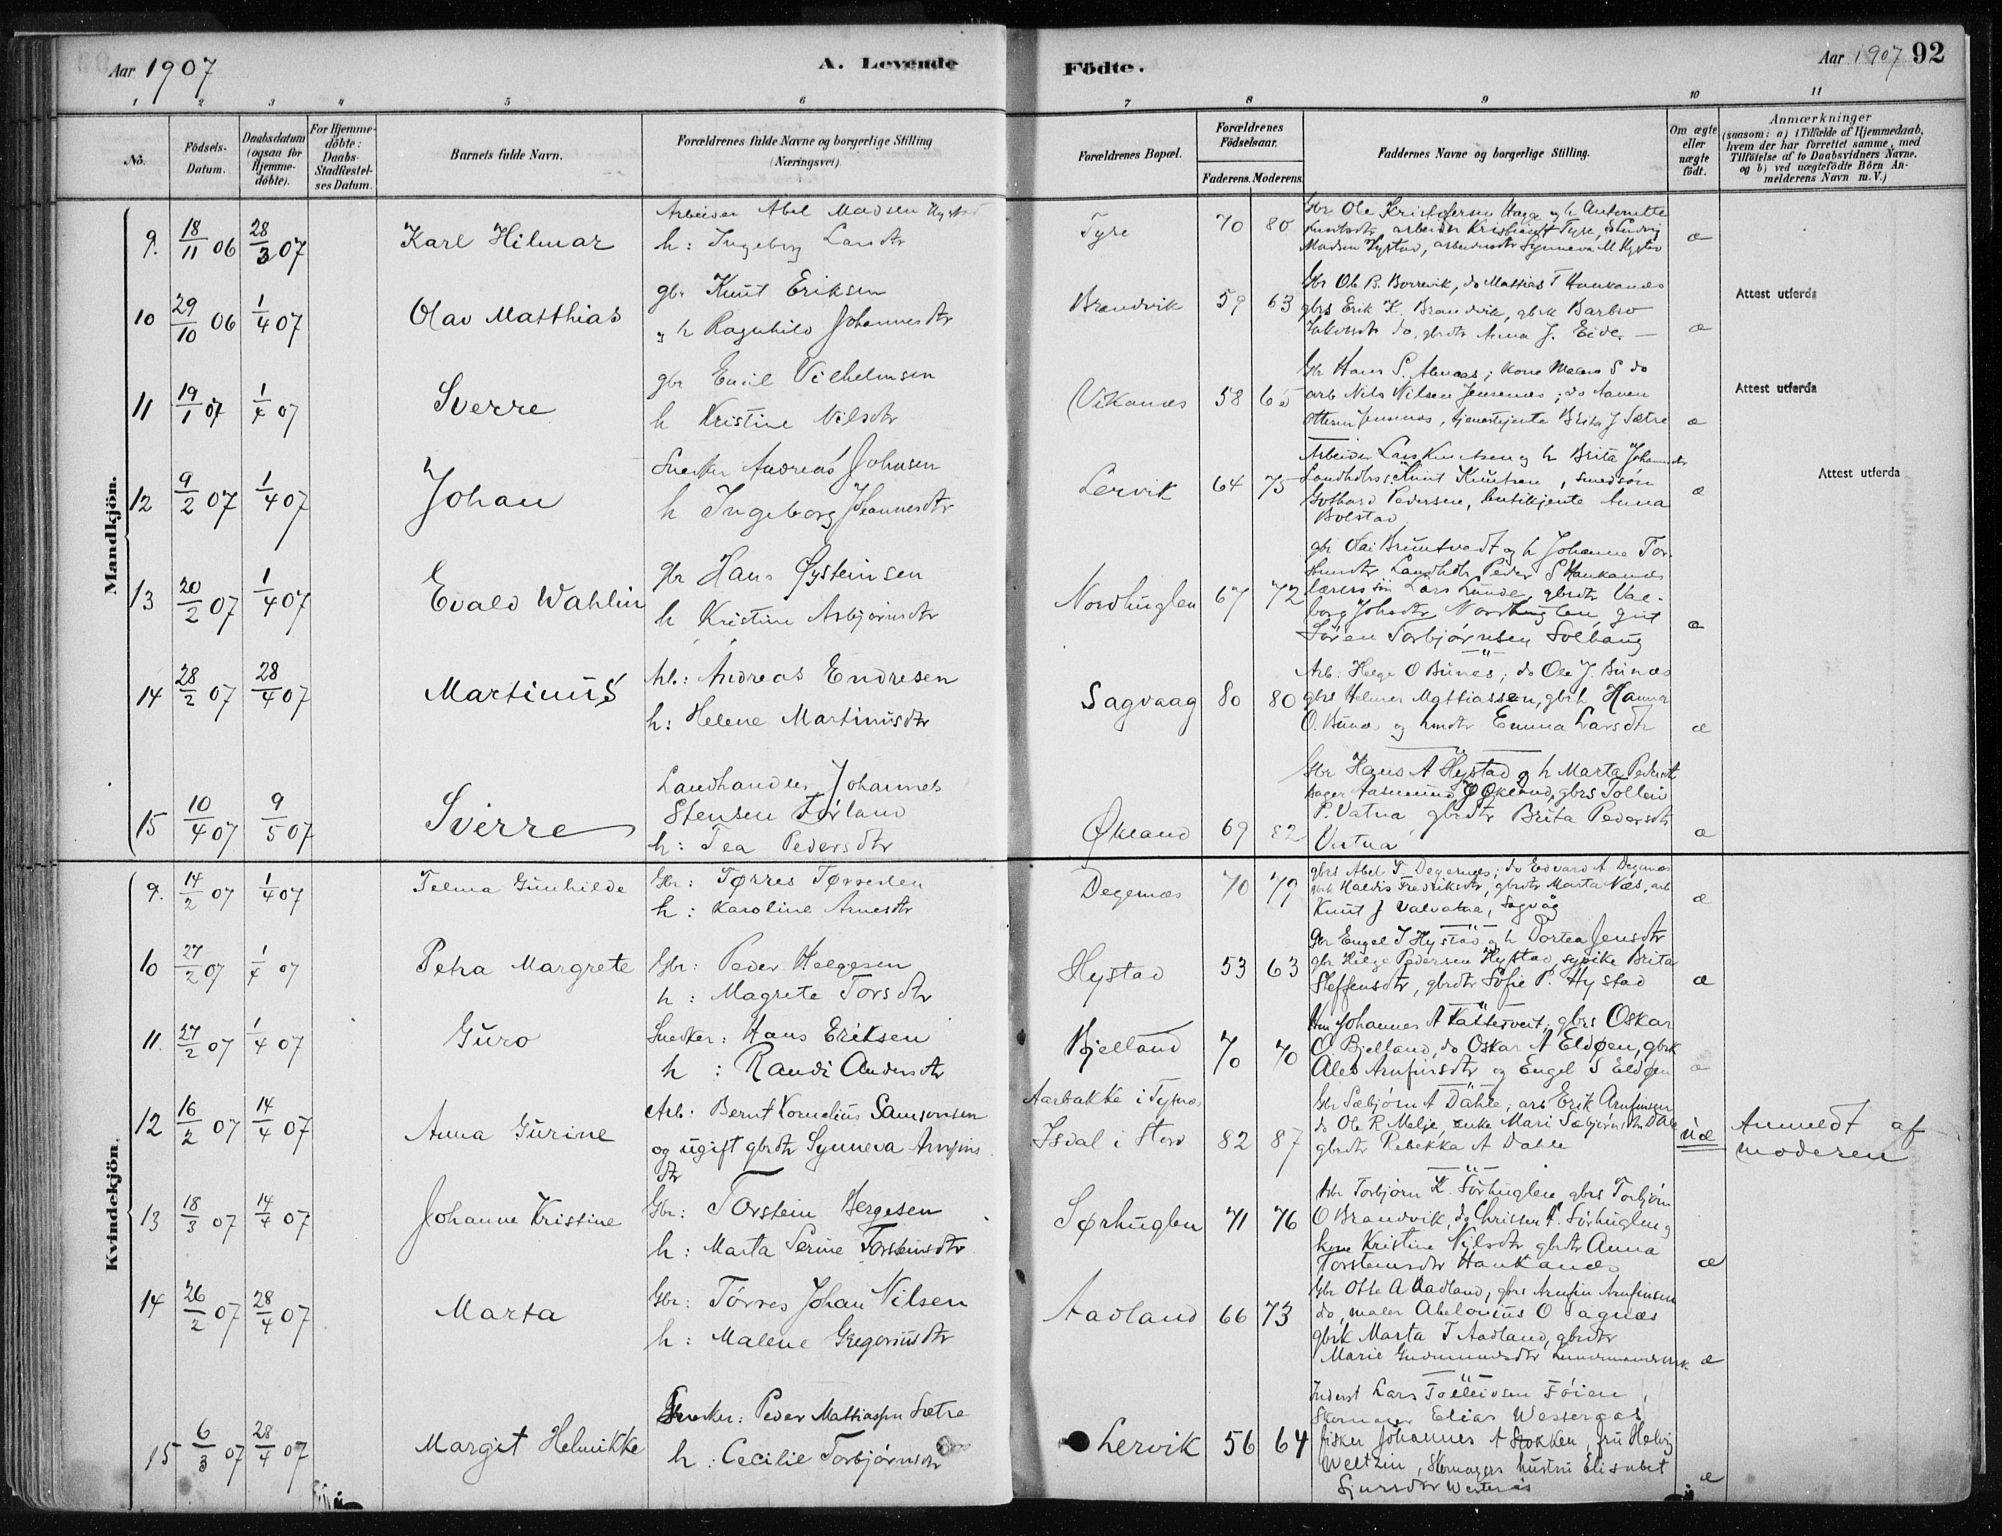 Aar 1907
A. Levende
Födte.
Aar 1907 92
1 2 3 4 5 6 7 8 9 10 11
No. Födsels-Datum. Daabsdatum (ogsaa for Hjemme-döbte). For Hjemme-döbte: Daabs-Stadfæstel-ses Datum. Barnets fulde Navn. Forældrenes fulde Navne og borgerlige Stilling (Næringsvei). Forældrenes Bopæl. Forældrenes Födselsaar. Faderens. Moderens. Faddernes Navne og borgerlige Stilling. Om ægte eller uægte födt. Anmærkninger (saasom: a) i Tilfælde af Hjemmedaab, hvem der har forrettet samme, med Tilföielse af to Daabsvidners Navne, og b) ved uægtefödte Börn An-melderens Navn m. V.)
Mandkjön.
9. 18/11 06 28/3 07 Karl Hilmar
Arbeider Abel Madsen Hystad
h: Ingeborg Larsdtr
Tyre 70 80
Gbr Ole Kristofersen Hage og h Antonette
arbeider Kristian Tyre, Ludvig
Madsen Hystad, arbeidersdtr Synneva M Hystad
æ
10 29/10 06 1/4 07 Olav Matthias
gbr Knut Eriksen
" h Ragnhild Johannesdtr
Brandvik 59 63
Gbr Ole B. Borrevik, do Mathias T Haukanæs
gbrs Erik K. Brandvik, gbrk Barbro
do, gbrdtr Anna J. Eide.
æ
Attest utferda
11 19/1 07 1/4 07 Sverre
gbr Emil Vilhelmsen
h Kristine Nilsdtr
Vikanæs 58 65
Gbr Hans S. Almaas; kone Malene S do
arb Nils Nilsen Jensenæs; do
Ottesen Jensenæs, tjenestejente Brita J Sætre
æ
Attest utferda
12 9/2 07 1/4 07 Johan
Snedker Andreas Johnsen
h Ingeborg Johannesdtr
Lervik 64 75
Arbeider Lars Knutsen og h Brita Johannesdtr
Landhdlrs Knut Knutsen, smedsøn
Gothard Pedersen, butikjente Anna
Bolstad
æ
Attest utferda
13 20/2 07 1/4 07 Evald Wahlin
gbr Hans Øysteinsen
h Kristine Asbjørnsdtr
Nordhuglen 67 72
gbr Olai Bruntvedt og h Johanne Tor-
Landhdlr Peder S Haukanæs
lærersøn Lars Lunde, gbrdtr Val-
borg Johsdtr Nordhuglen, gut
Søren Torbjørnsen Solhaug
æ
14 28/2 07 28/4 07 Martinus
Arb: Andreas Endresen
h: Helene Martinusdtr
Sagvaag 80 80
Arb: Helge O Bunes; do Ole J. Bunæs
gbrs Helmer Mathiassen, gbrk Hanna
O. Bunæs og hmdtr Emma Larsdtr
æ
15 10/4 07 9/5 07 Sverre
Landhandler Johannes
Stensen Førland
h: Tea Pedersdtr
Økland 69 82
Gbr Hans A Hystad og h Marta Pedersdtr
bager Aasmund J Økland, gbrs Tollein
P. Vatna, gbrdtr Brita Pedersdtr
Vatna
æ
Kvindekjön.
9. 14/2 07 1/4 07 Telma Gunhilde
Gbr: Tørres Tørresen
h: Karoline Arnesdtr
Degernæs 70 79
gbrs Abel T. Degernæs; do Edvard A Degernæs
gbrk Haldis Fredriksdtr, gbrdtr Marta Næs, arb
Knut J Valvatna, Sagvåg
æ
10 27/2 07 1/4 07 Petra Margrete
Gbr: Peder Helgesen
h: Magrete Torsdtr
Hystad 53 63
Gbr Engel T Hystad og h Dortea Jensdtr
gbr Helge Pedersen Hystad, sypike Brita
Steffensdtr, gbrdtr Sofie P. Hystad
æ
11. 27/2 07 1/4 07 Guro
Snedker: Hans Eriksen
h: Randi Andersdtr
Bjelland 70 70
Hm Johannes A Kattetveit, gbrs Oskar
O Bjelland, do Oskar A Eldøen, gbrk
Ales Arnfinsdtr og Engel S Eldøen
æ
12 16/2 07 14/4 07 Anna Gurine
Arb: Bernt Kornelius Samsonsen
og ugift gbrdtr Synneva Arnfins
dtr
Aarbakke i Tysnes
Isdal i Stord 82 87
Gbr Sæbjørn A Dahle, arb Erik Arnfinsen
do Ole R Melje, enke Mari Sæbjørnsdtr Dale
gbrdtr Rebekka A Dahle
uæ
Anmeldt af
moderen
13 18/3 07 14/4 07 Johanne Kristine
Gbr: Torstein Bergesen
h: Marta Serine Torsteinsdtr
Sørhuglen 71 76
Gbr Torbjørn K. Sørhuglen gbrs Torbjørn
O Brandvik, do Christen P. Sørhuglen og
kone Kristine Nilsdtr gbrdtr Anna
Torsteinsdtr Haukanæs
æ
14 26/2 07 28/4 07 Marta
Gbr: Tørres Johan Nilsen
h: Malene Gregoriusdtr
Aadland 66 73
Gbr Otte A Aadland, gbrs Arnfin Arnfinsen
do, maler Abelonius O Sagnæs
gbrk Marta T Aadland, gbrdtr
Marie Gudmundsdtr
æ
15 6/3 07 28/4 07 Margit Helmikke
Snedker: Peder Mathiassen Sætre
h: Cecilie Torbjørnsdtr
Lervik 56 64
Inderst Lars Tolleivsen Føien,
Skomager Elias Westeraas
fisker Johannes A Stokken, fru Helvig
Weltzin, skomagers hustru Elisabet
Sjursdtr Westeraas
æ